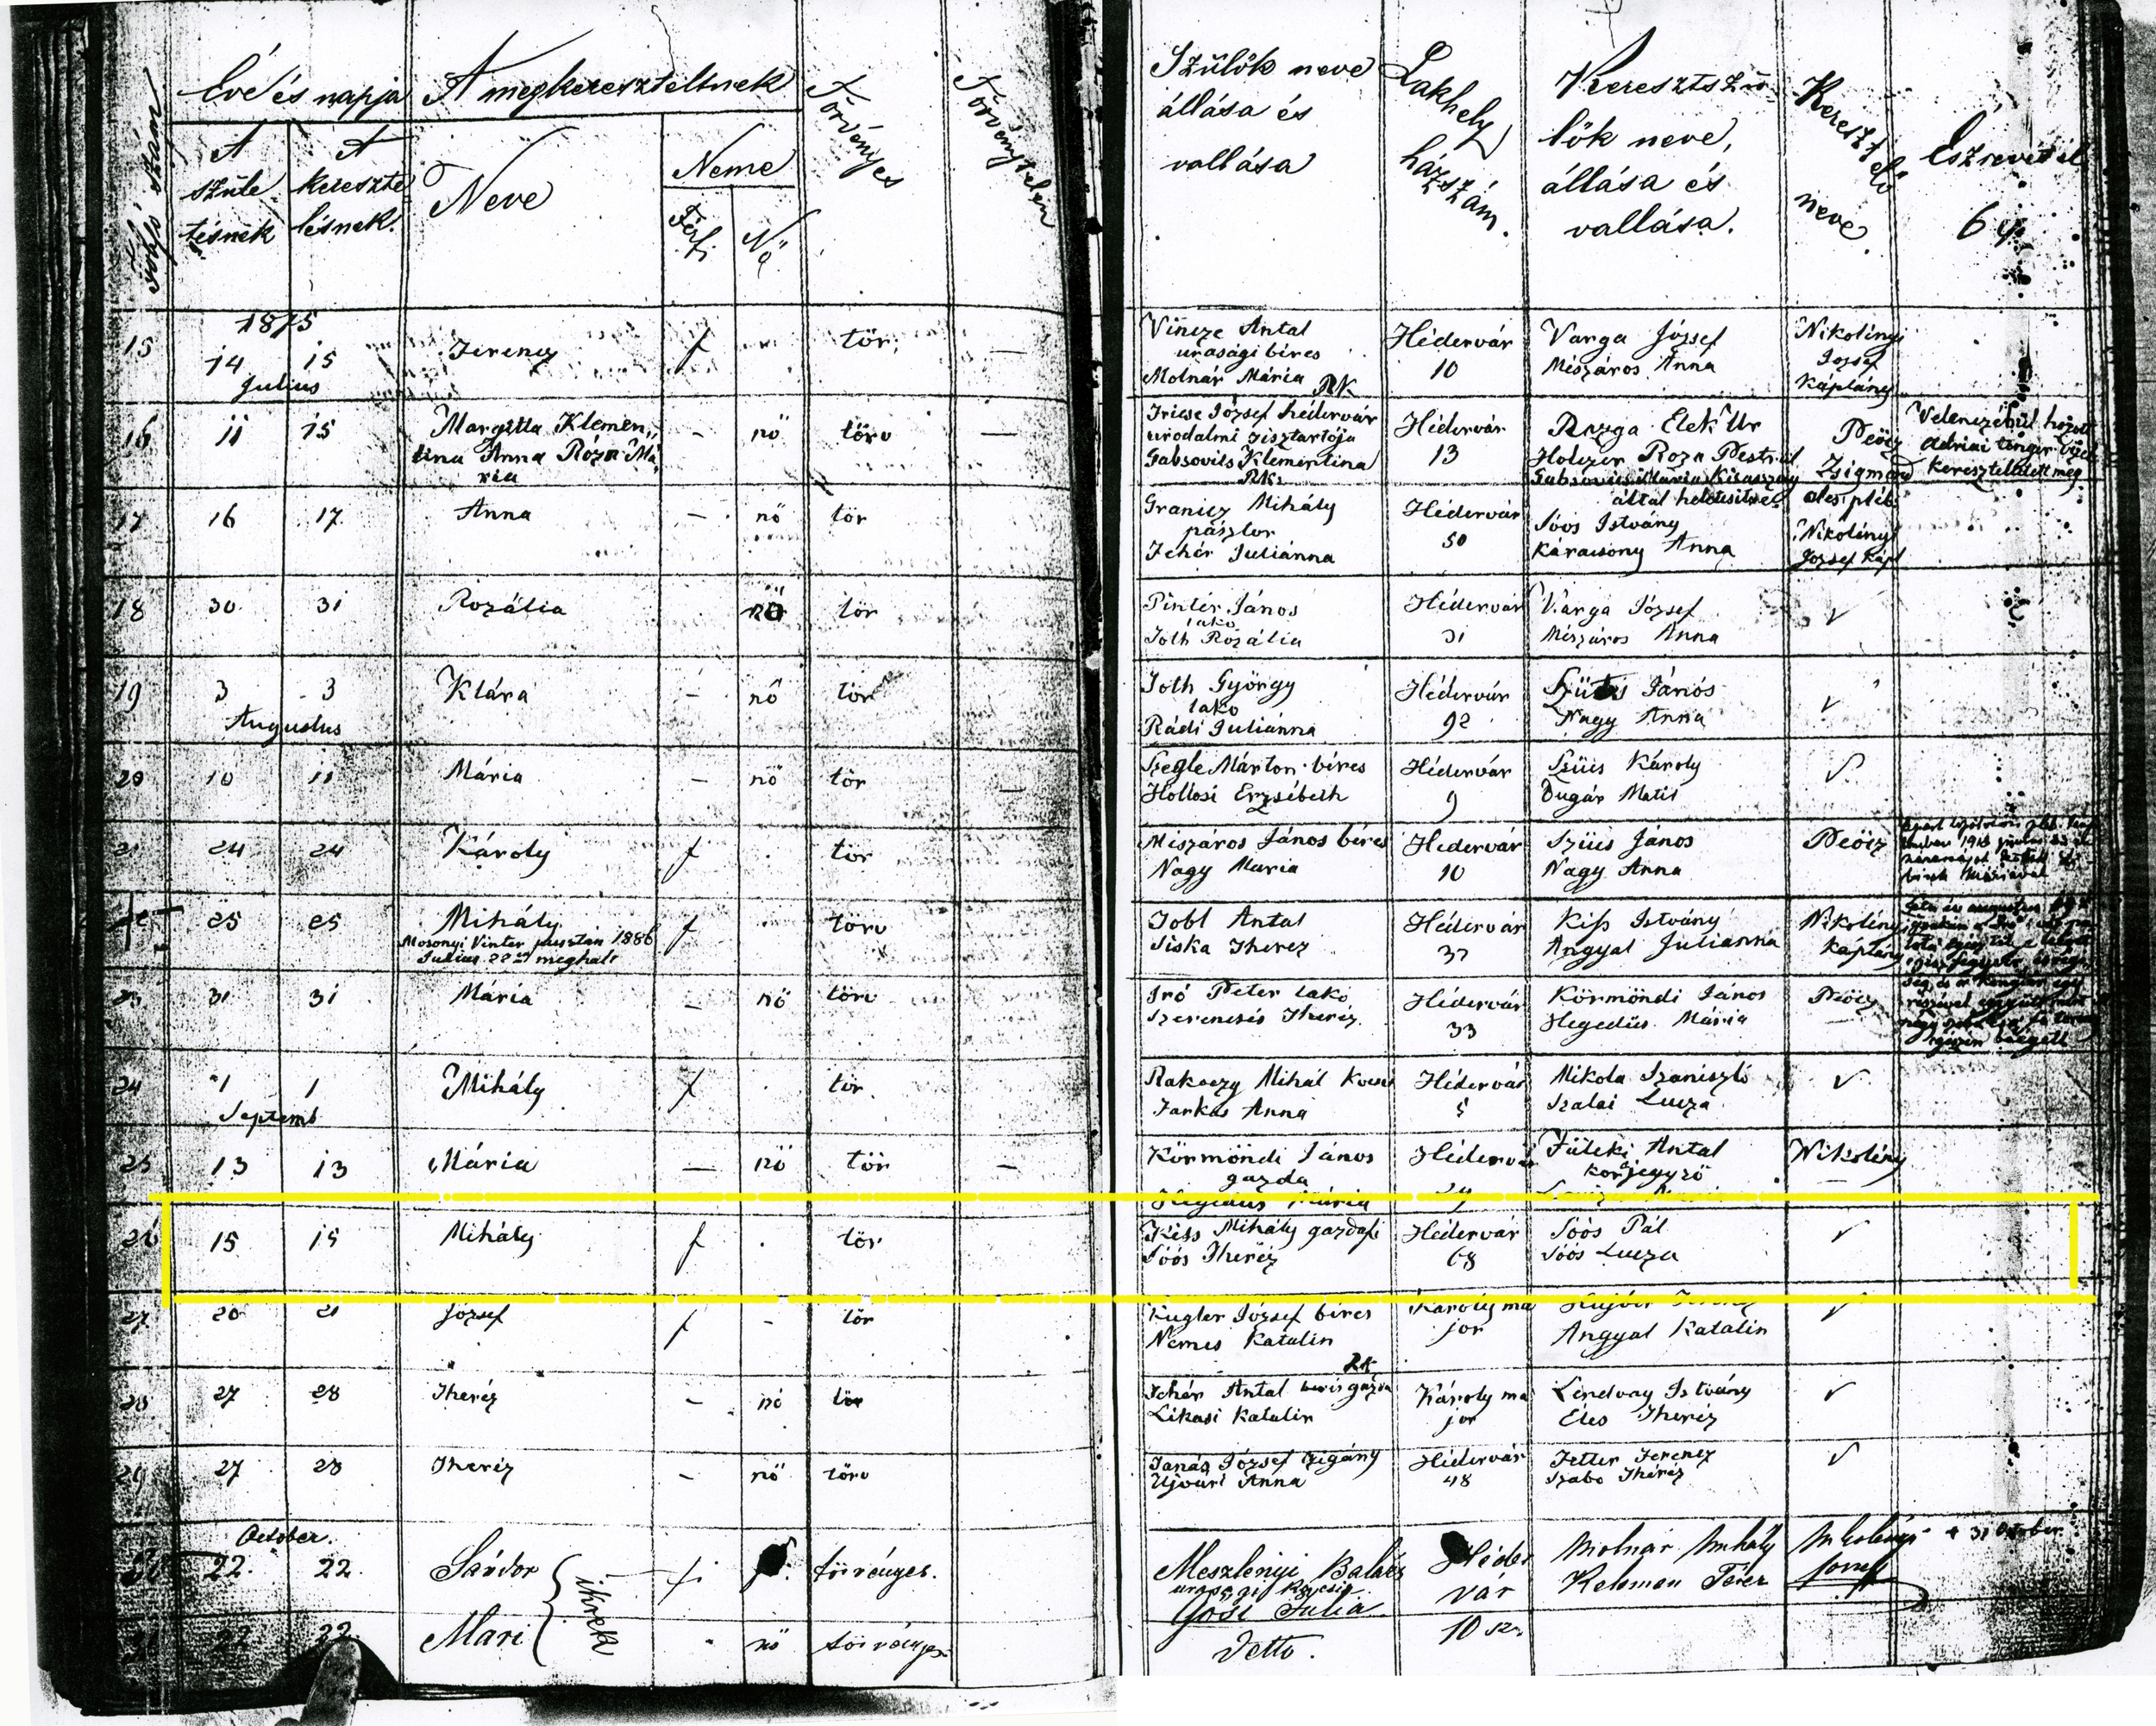 Folyó szám
Évé és napja
A megkereszteltnek
Törvényes
Törvénytelen
A szüle
tésnek
A kereszte
lésnek.
Neve
Neme
Férfi
Nő
Szülők neve
állása és
vallása
Lakhely
házszám.
Keresztszü-
lők neve,
állása és
vallása.
Keresztelő
neve.
Észrevétel
64
1875
15 14 15 Ferencz f tör. —
Julius
Vincze Antal
urasági béres
Molnár Mária RK
Hédervár
10
Varga József
Mészáros Anna
Nikolényi
József
Káplány
16 11 15 Margitta Klemen„
tina Anna Róza Má
ria
– nő törv —
József Hédervár
urodalmi tisztartója
Gabsovits Klementina
RK.
Hédervár
13
Elek Ur
Holczer Roza
által
Peöcz
Zsigmond
Velenczébül hozott
adriai tenger
kereszteltetett meg
17 16 17 Anna – nő tör
Granicz Mihály
pásztor
Fehér Juliánna
Hédervár
50
Soós István
Karácsony Anna
Nikolényi
József Kápl
18 30 31 Rozália nő tör
Pintér János
lakó
Toth Rozália
Hédervár
31
Varga József
Mészáros Anna
✓
19 3 3 Klára – nő tör
Augustus
Toth György
lakó
Rádi Juliánna
Hédervár
92
Szüts János
Nagy Anna
✓
20 10 11 Mária – nő tör —
Szegle Márton béres
Hollosi Erzsébeth
Hédervár
9
Szüts Károly
Dugár Matil
✓
21 24 24 Károly f tör
Mészáros János béres
Nagy Maria
Hedervár
10
Szüts János
Nagy Anna
Peöcz
25 25 Mihály f törv
Mosonyi Vinter pusztán 1886
Julius 22én meghalt
Tobl Antal
Siska Therez
Hédervár
37
Kiss Istvány
Angyal Julianna
Nikolényi
Kaplány
23 31 31 Mária – nő törv
Iró Peter lakó
Szerencsés Theréz
Hédervár
33
Körmöndi János
Hegedüs Mária
Peöcz
24 1 1 Mihály f tör.
Septemb
Rakoczy Mihál
Farkas Anna
Hédervár
5
Mikola Szaniszló
Szalai Lucza
✓
25 13 13 Mária — nő tör —
Körmöndi János
gazda
Hegedüs Mária
Hédervár
Füleki Antal
körjegyző
Nikolény
26 15 15 Mihály f . tör
Kiss Mihály gazdafi
Soós Theréz
Hédervár
68
Soós Pál
Soós Lucza
✓
27 20 21 József f – tör
Kugler József béres
Nemes Katalin
Károly ma
jor
Angyal Katalin
✓
28 27 28 Theréz – nő tör
RK
Fehér Antal
Likasi Katalin
Károly ma
jor
Lindvay Istvány
Éles Theréz
✓
29 27 28 Theréz – nő törv
Janás József czigány
Ujvári Anna
Hédervár
48
Fetler Ferencz
Szabo Théréz
✓
October.
22. 22. Sándor ikrek törvényes.
Meszlényi Balázs
Gősi Julia
Héder
vár
10 sz.
Molnár Mihály
Kelemen Teréz
Nikolényi
József
+ 31 October
22 22. Mari nő törvényes.
Detto.